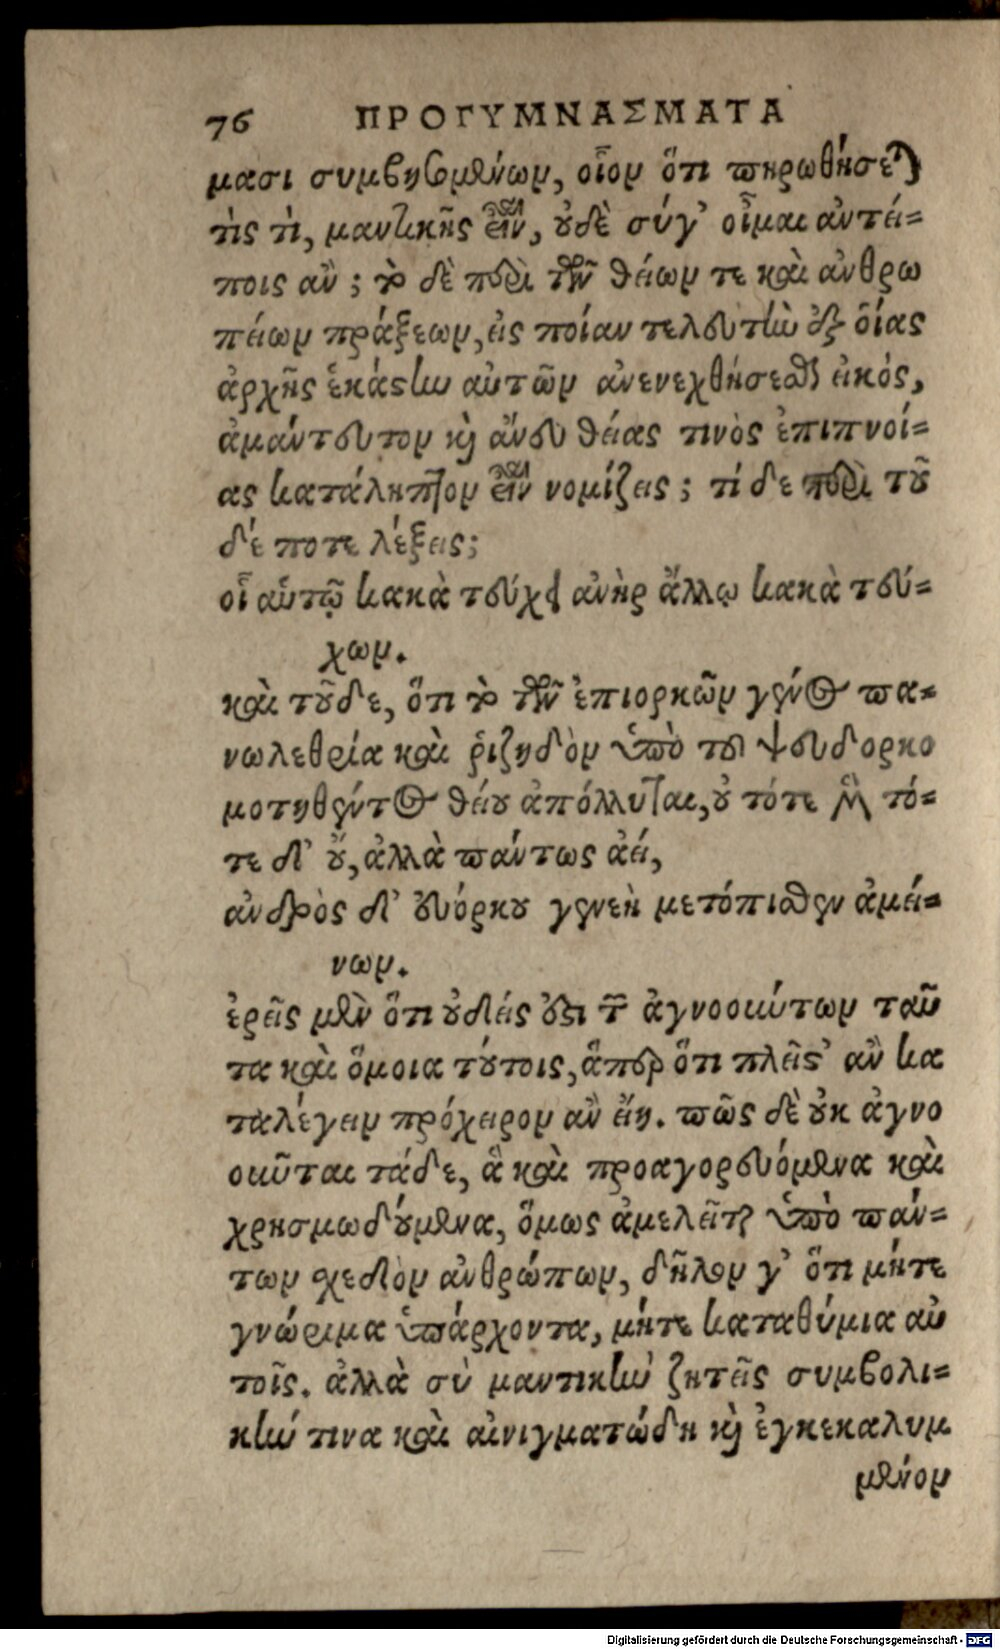 76 ΠΡΟΓΥΜΝΑΣΜΑΤΑ
μασι συμβησομένων, οἷον ὅτι πηρωθήσεται
τὶς τὶ, μαντικῆς εἶναι, οὐδὲ σύγ' οἶμαι ἀντεί-
ποις ἄν; τὸ δὲ περὶ τῶν θείων τε καὶ ἀνθρω
πείων πράξεων, εἰς ποίαν τελευτὴν ἐξ οἵας
ἀρχῆς ἑκάστην αὐτῶν ἀνενεχθήσεσθαι εἰκός,
ἀμάντευτον καὶ ἄνευ θείας τινὸς ἐπιπνοί-
ας κατάληπτον εἶναι νομίζεις; τί δε περὶ τοῦ
δέ ποτε λέξεις;
οἷ αὑτῷ κακὰ τεύχει ἀνὴρ ἄλλῳ κακὰ τεύ-
χων.
καὶ τοῦδε, ὅτι τὸ τῶν ἐπιορκῶν γένος πα-
νωλεθρία καὶ ῥιζηδὸν ὑπὸ τοῦ ψευδορκο
μοτηθέντος θείου ἀπόλλυται, οὐ τότε μὲν τό-
τε δ' οὔ, ἀλλὰ πάντως ἀεί,
ἀνδρὸς δ' εὐόρκου γενεὴ μετόπισθεν ἀμεί-
νων.
ἐρεῖς μὲν ὅτι οὐδείς ἐστι τῶν ἀγνοούντων ταῦ
τα καὶ ὅμοια τούτοις, ἅπερ ὅτι πλεῖστ' ἂν κα
ταλέγειν πρόχειρον ἂν εἴη. πῶς δὲ οὐκ ἀγνο
οῦνται τάδε, ἃ καὶ προαγορευόμενα καὶ
χρησμωδούμενα, ὅμως ἀμελεῖται ὑπὸ πάν-
των σχεδὸν ἀνθρώπων, δῆλον γ' ὅτι μήτε
γνώριμα ὑπάρχοντα, μήτε καταθύμια αὐ
τοῖς. ἀλλὰ σὺ μαντικὴν ζητεῖς συμβολι-
κήν τινα καὶ αἰνιγματώδη καὶ ἐγκεκαλυμ
μένον
Digitalisierung gefördert durch die Deutsche Forschungsgemeinschaft - DFG